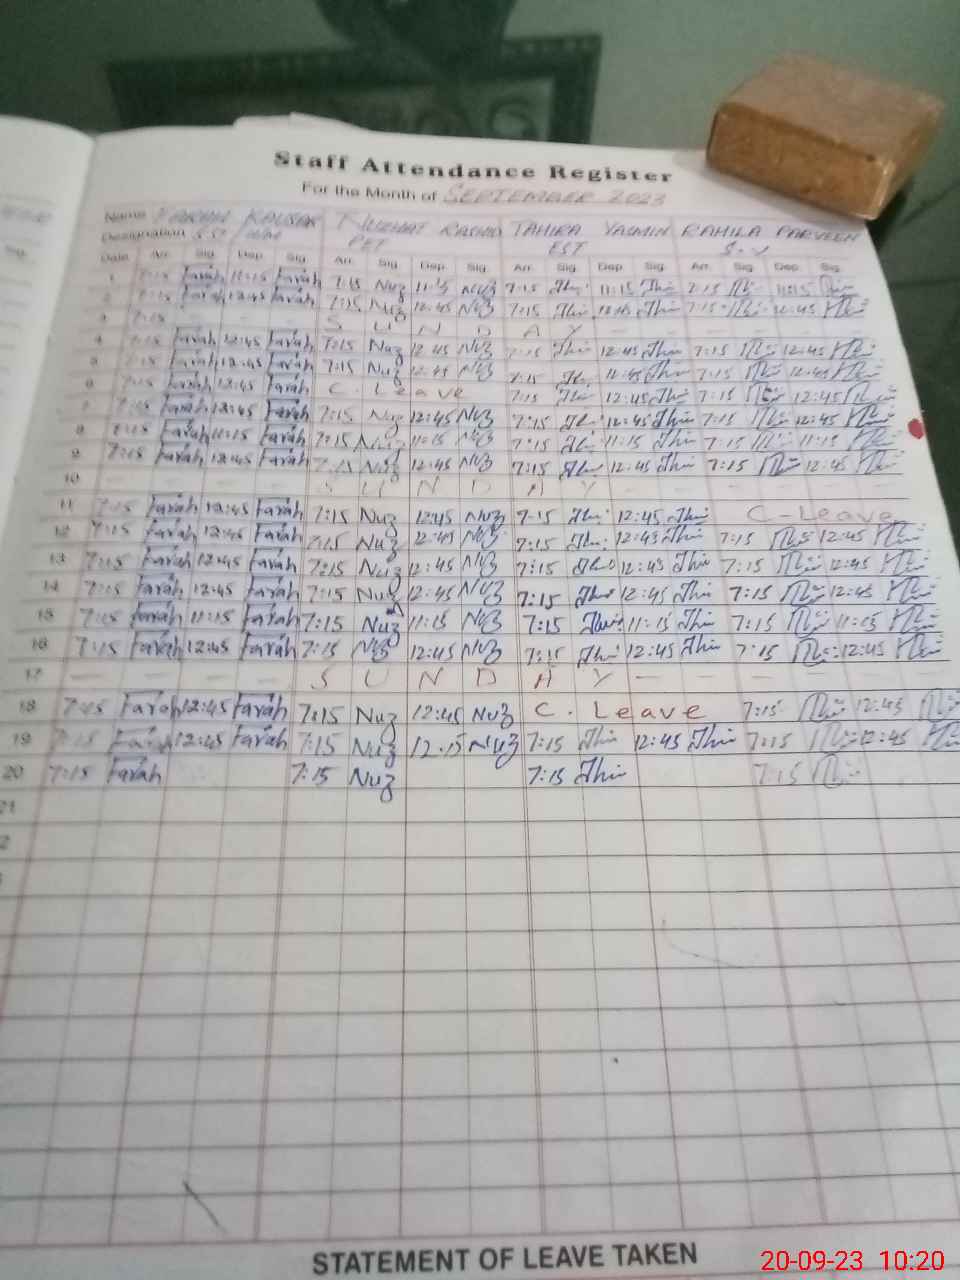 Staff Attendance Register
For the Month of SEPTEMBER 2023
Name FARAH KAUSAR NUZHAT RASHID TAHIRA YASMIN RAHILA PARVEEN
Designation PET EST S-V
Date Arr. Sig. Dep. Sig. Arr. Sig. Dep. Sig. Arr. Sig. Dep. Sig. Arr. Sig. Dep. Sig.
1 7:15 Farah 11:15 Farah 7:15 Nuz 11:15 Nuz 7:15 11:15 7:15 11:15
2 7:15 Farah 12:45 Farah 7:15 Nuz 12:45 Nuz 7:15 12:45 7:15 12:45
3 7:15 S U N D A Y
4 7:15 Farah 12:45 Farah 7:15 Nuz 12:45 Nuz 7:15 12:45 7:15 12:45
5 7:15 Farah 12:45 Farah 7:15 Nuz 12:45 Nuz 7:15 12:45 7:15 12:45
6 7:15 Farah 12:45 Farah C. Leave 7:15 12:45 7:15 12:45
7 7:15 Farah 12:45 Farah 7:15 Nuz 12:45 Nuz 7:15 12:45 7:15 12:45
8 7:15 Farah 11:15 Farah 7:15 Nuz 11:15 Nuz 7:15 11:15 7:15 11:15
9 7:15 Farah 12:45 Farah 7:15 Nuz 12:45 Nuz 7:15 12:45 7:15 12:45
10 — S U N D A Y —
11 7:15 Farah 12:45 Farah 7:15 Nuz 12:45 Nuz 7:15 12:45 C-Leave
12 7:15 Farah 12:45 Farah 7:15 Nuz 12:45 Nuz 7:15 12:45 7:15 12:45
13 7:15 Farah 12:45 Farah 7:15 Nuz 12:45 Nuz 7:15 12:45 7:15 12:45
14 7:15 Farah 12:45 Farah 7:15 Nuz 12:45 Nuz 7:15 12:45 7:15 12:45
15 7:15 Farah 11:15 Farah 7:15 Nuz 11:15 Nuz 7:15 11:15 7:15 11:15
16 7:15 Farah 12:45 Farah 7:15 Nuz 12:45 Nuz 7:15 12:45 7:15 12:45
17 — S U N D A Y —
18 7:15 Farah 12:45 Farah 7:15 Nuz 12:45 Nuz C. Leave 7:15 12:45
19 7:15 Farah 12:45 Farah 7:15 Nuz 12.15 Nuz 7:15 12:45 7:15 12:45
20 7:15 Farah 7:15 Nuz 7:15 7:15
21
STATEMENT OF LEAVE TAKEN
20-09-23 10:20